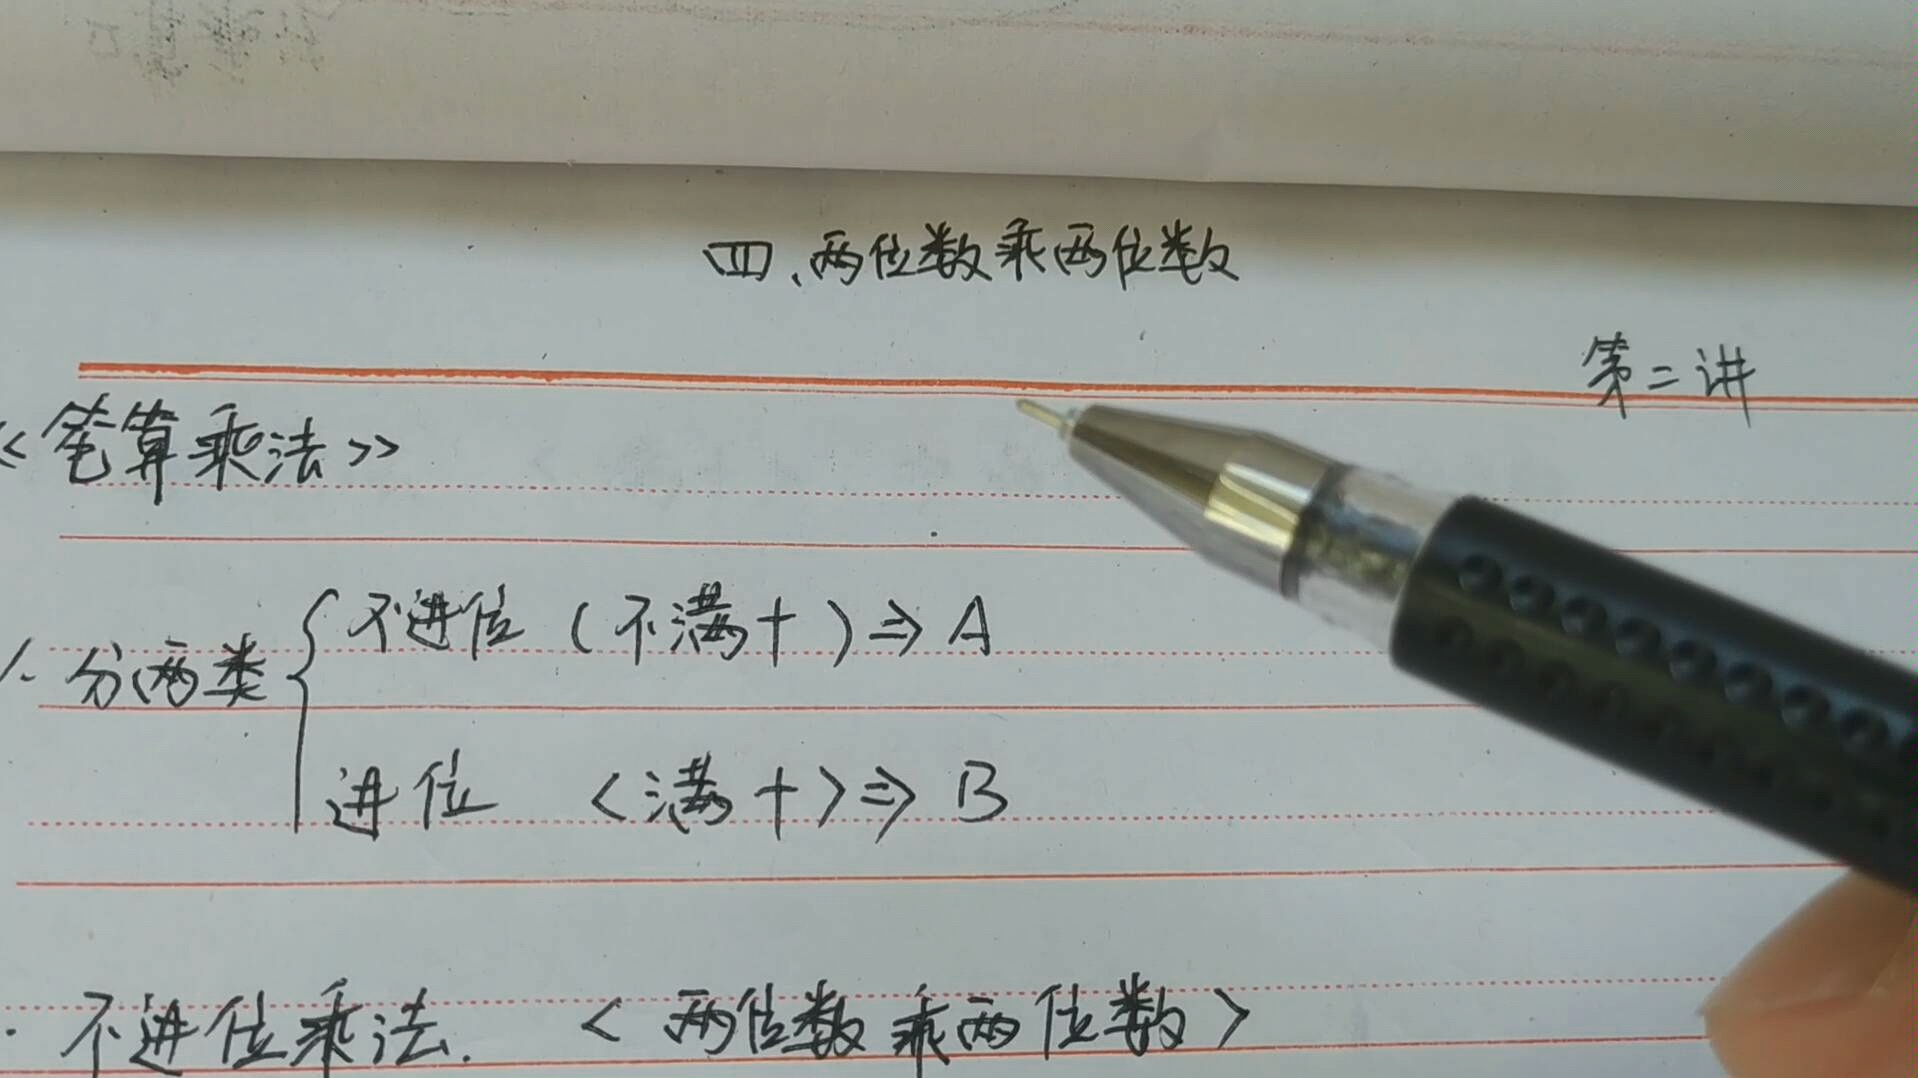 四、两位数乘两位数
第二讲
<<笔算乘法>>
1. 分两类 { 不进位 (不满十) ⇒ A
进位 <满十> ⇒ B
. 不进位乘法. <两位数乘两位数>